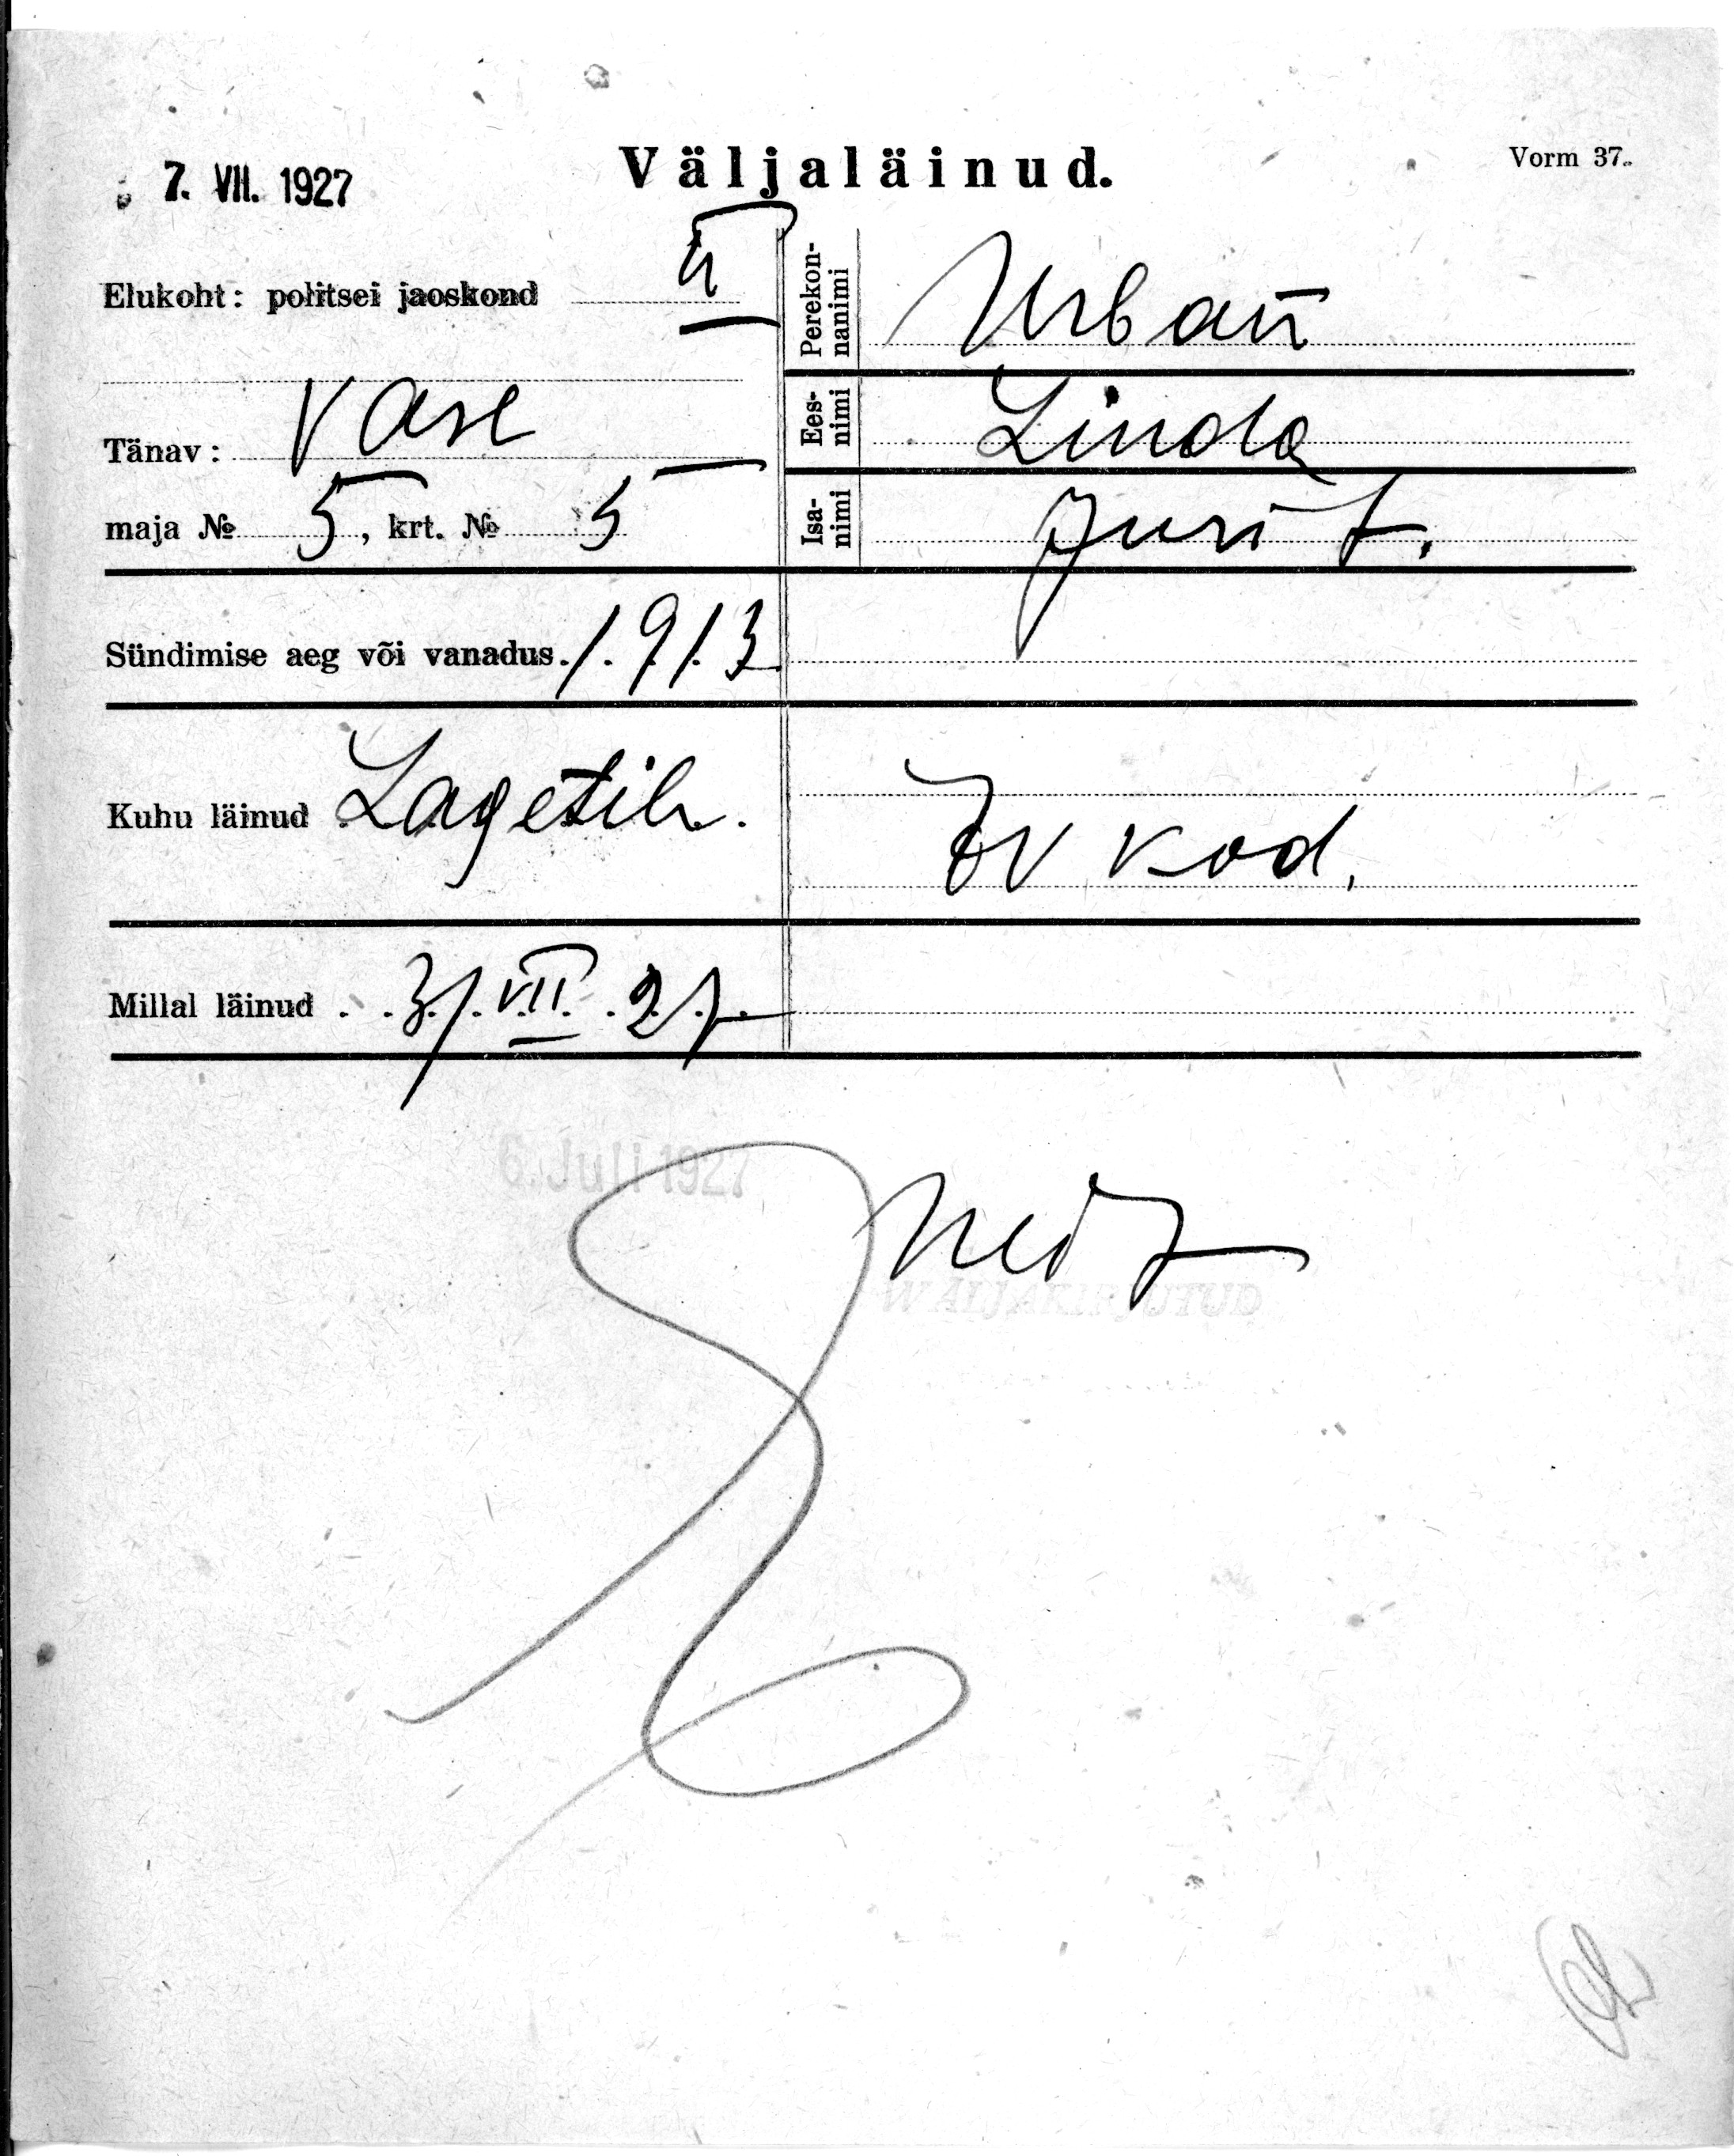 7. VII. 1927
Väljaläinud.
Vorm 37.
Elukoht: politsei jaoskond II
Tänav: Vase
maja № 5, krt. № 5
Perekonnanimi Urban
Eesnimi Linda
Isanimi Juri t.
Sündimise aeg või vanadus. 1913
Kuhu läinud Lagetih.
Ev kod.
Millal läinud 3/VII 27
6. Juli 1927
WÄLJAKIRJUTUD